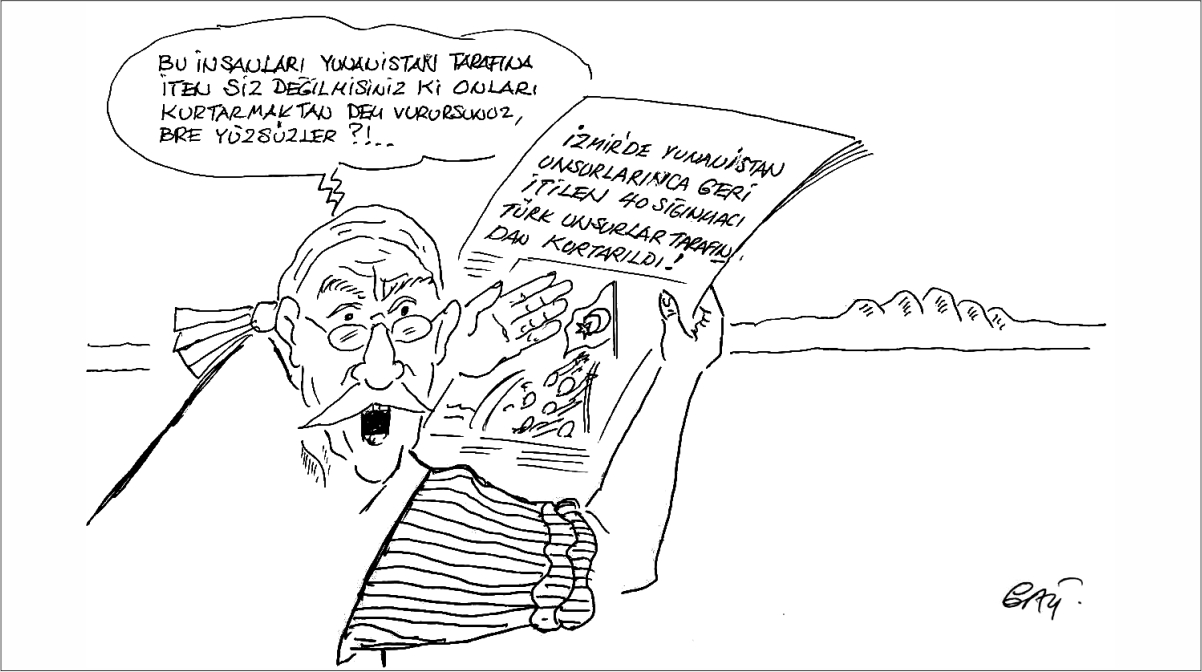 BU İNSANLARI YUNANİSTAN TARAFINA
İTEN SİZ DEĞİLMİSİNİZ Kİ ONLARI
KURTARMAKTAN DEM VURURSUNUZ,
BRE YÜZSÜZLER ?!...
İZMİR'DE YUNANİSTAN
UNSURLARINCA GERİ
İTİLEN 40 SIĞINMACI
TÜRK UNSURLAR TARAFIN
DAN KURTARILDI!